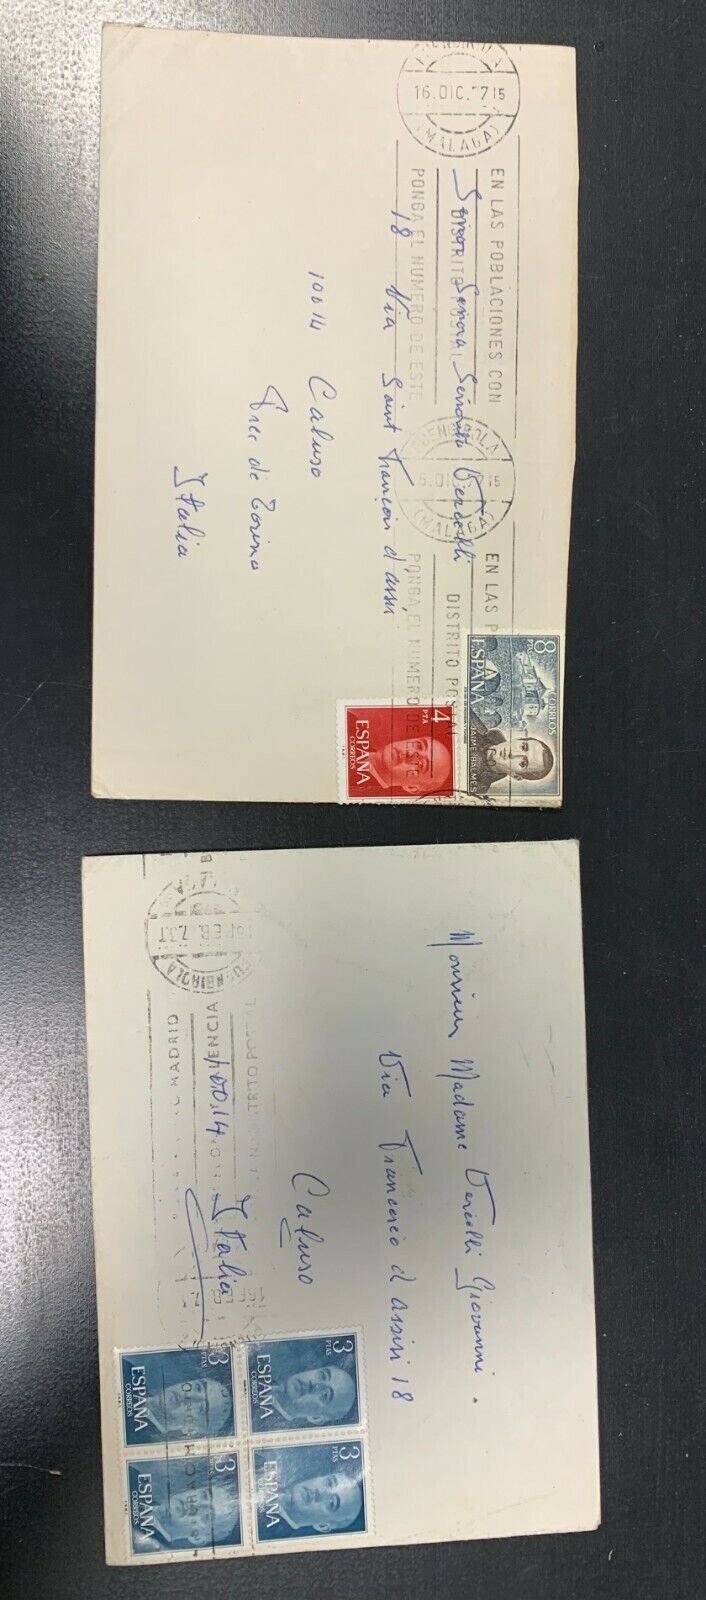 FUENGIROLA
16.DIC.7715
(MALAGA)
EN LAS POBLACIONES CON
DISTRITO POSTAL
PONGA EL NUMERO DE ESTE
FUENGIROLA
DIC. 7715
(MALAGA)
EN LAS P
DISTRITO POSTAL
PONGA EL NUMERO DE ESTE
Senor Senora Senorita Vercelli
18 Via Saint Françoi d'assisi
10014 Caluso
Prec de Torino
Italia
8
PTAS
ESPAÑA
CORREOS
JAIME BALMES
4
PTA
ESPAÑA
CORREOS
FUENGIROLA
FEB. 73
MADRID
Monsieur Madame Vercelli Giovanni.
Via Francesco d assisi 18
Caluso
10014
Italia
3
PTAS
ESPAÑA
CORREOS
3
PTAS
ESPAÑA
CORREOS
3
PTAS
ESPAÑA
CORREOS
3
PTAS
ESPAÑA
CORREOS